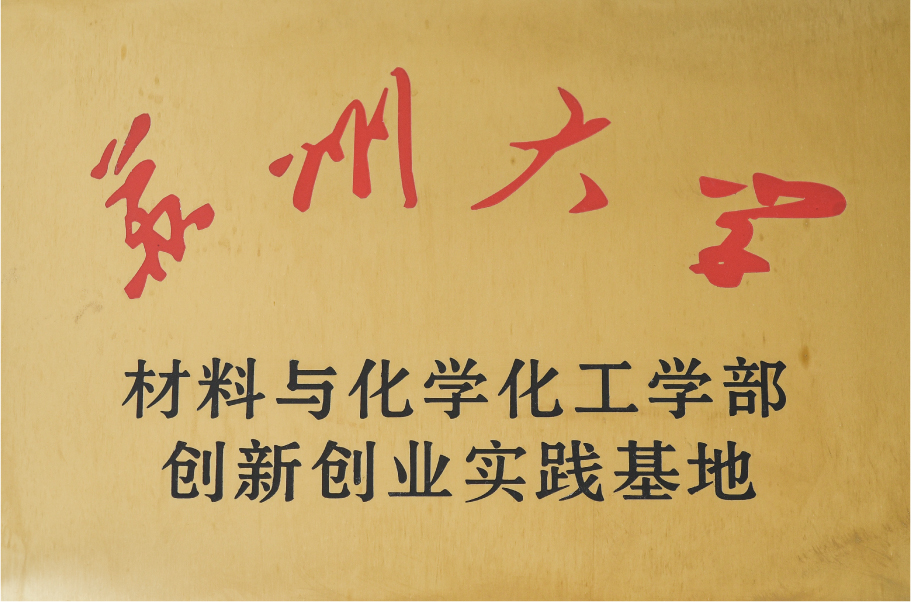 苏州大学
材料与化学化工学部
创新创业实践基地